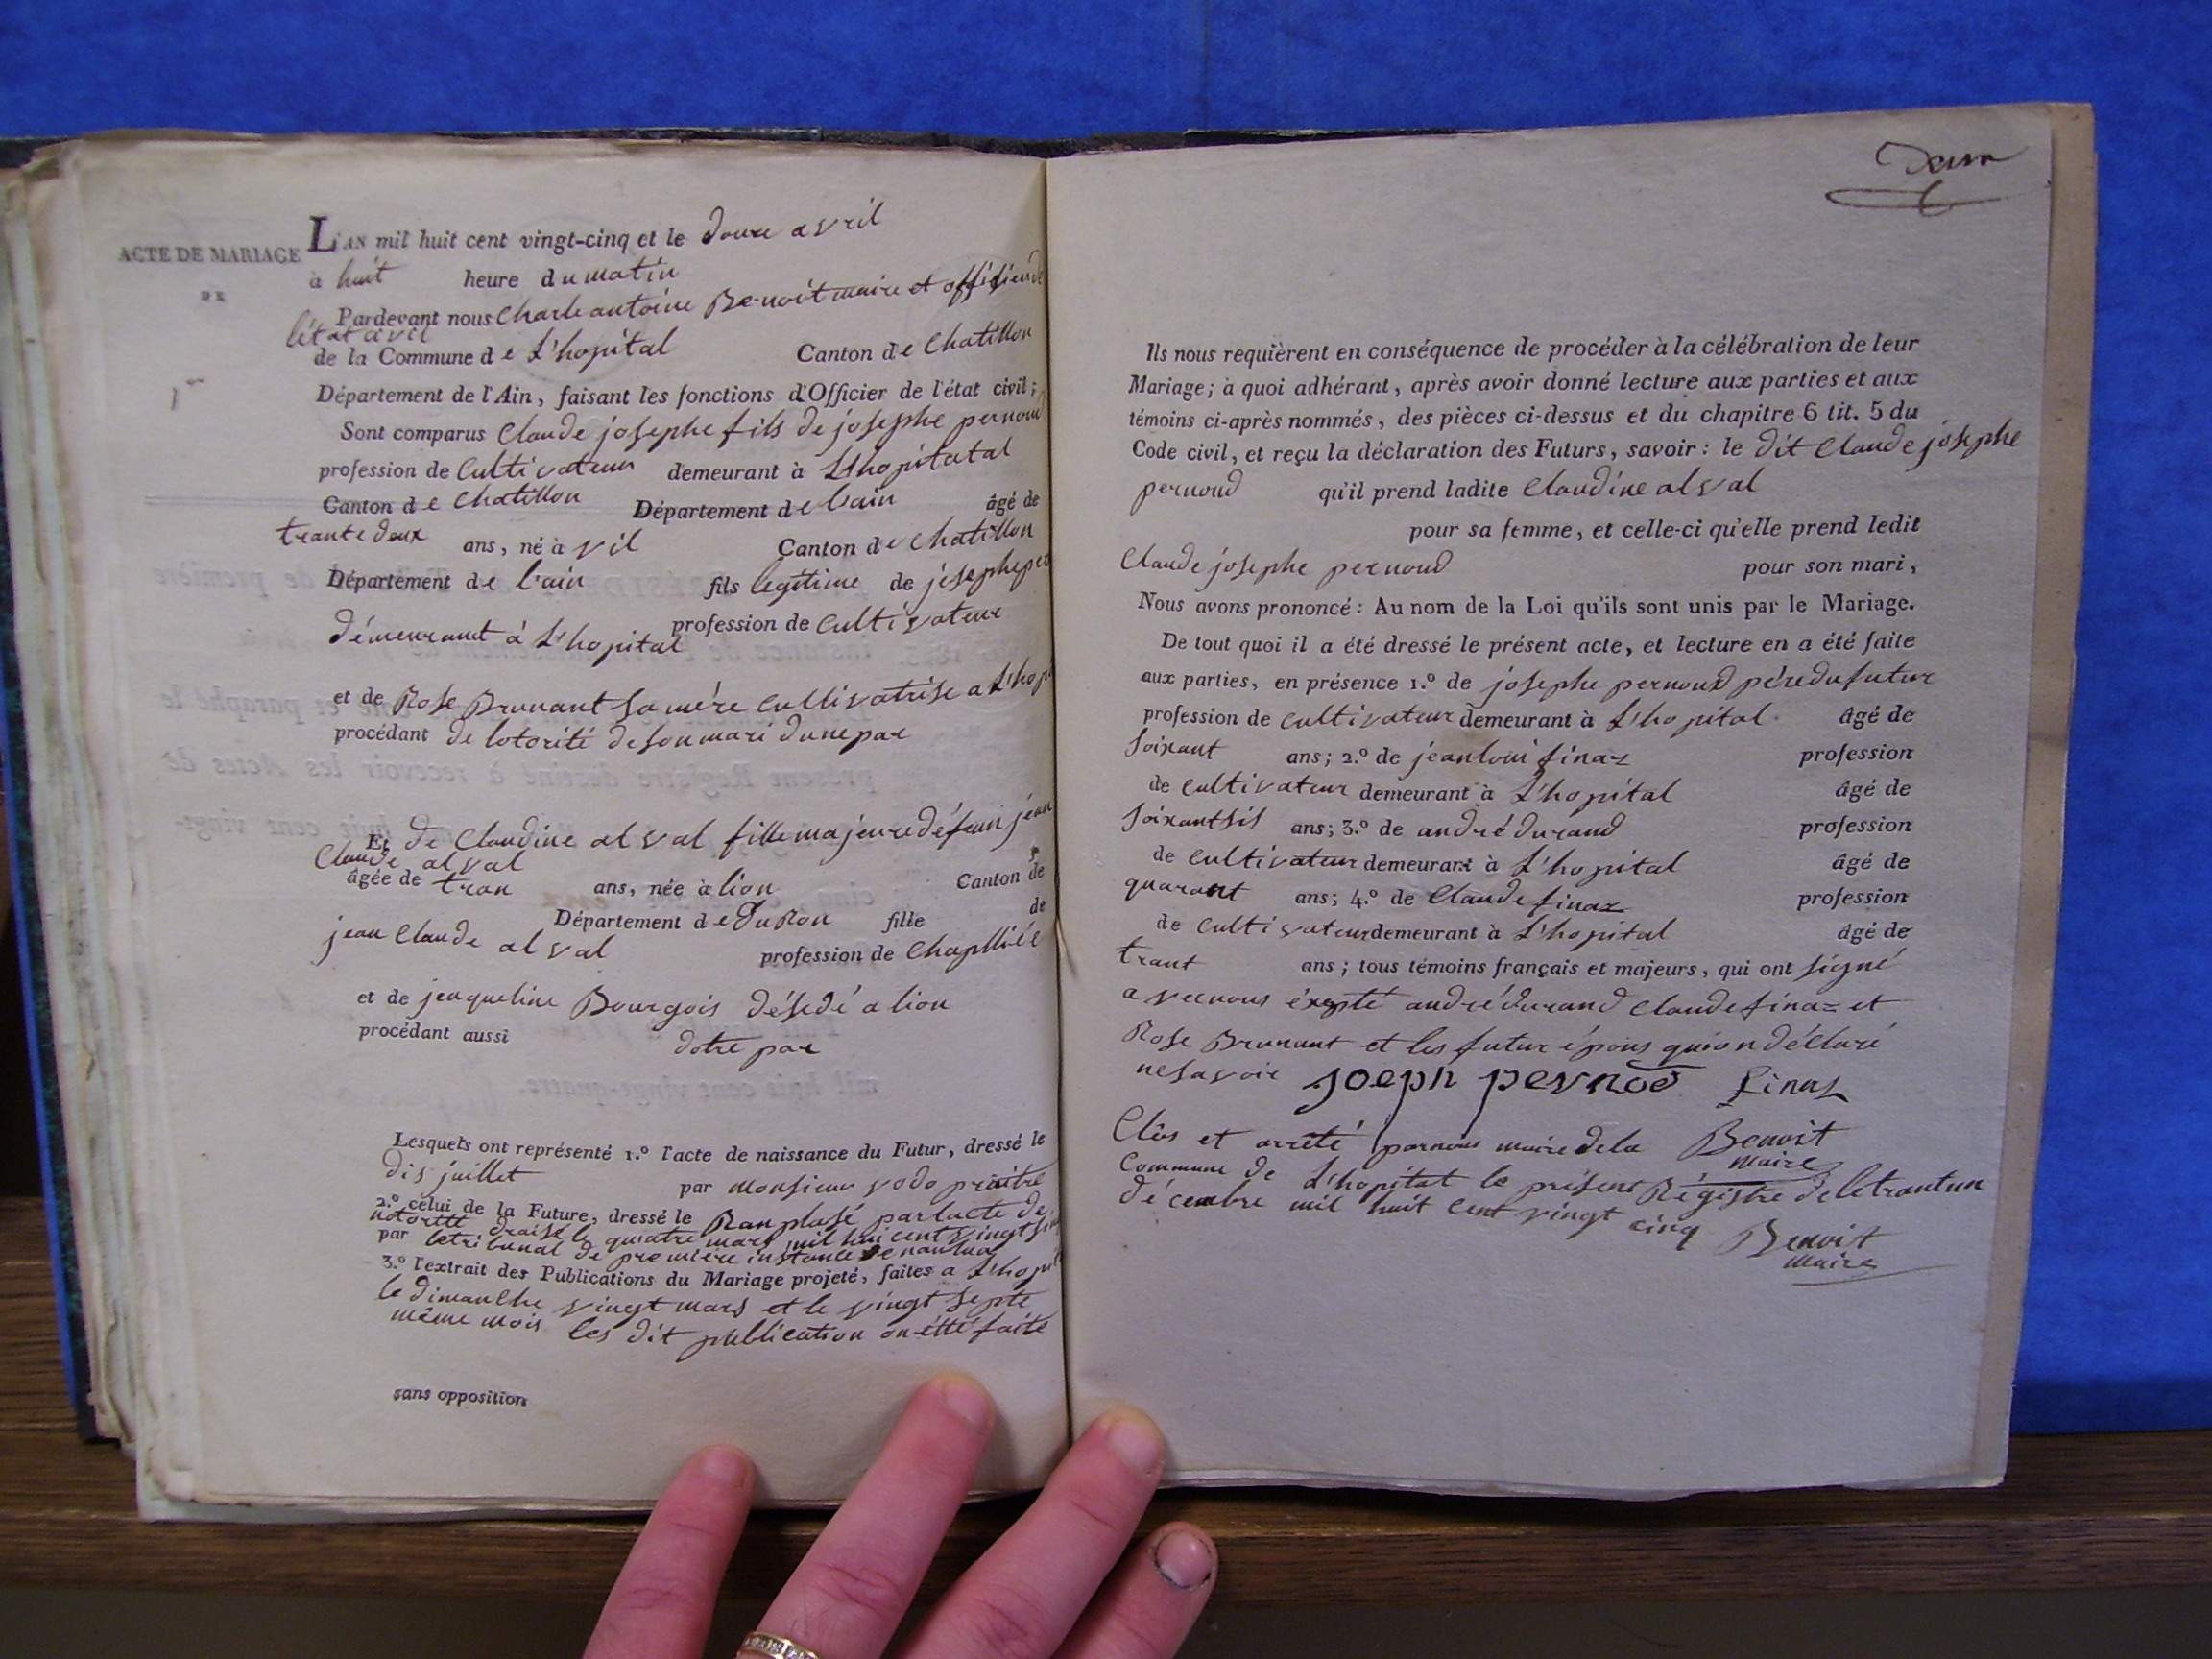 ACTE DE MARIAGE
DE
1er
L'AN mil huit cent vingt-cinq et le douze avril
à huit heure du matin
Pardevant nous Charle antoine Benoit maire et offisien de
létat civil
de la Commune de L'hopital Canton de Chatillon
Département de l'Ain, faisant les fonctions d'Officier de l'état civil;
Sont comparus Claude josephe fils de josephe pernoud
profession de Cultivateur demeurant à L'hopitatal
Canton de Chatillon Département de lain âgé de
trante deux ans, né à vil Canton de Chatillon
Département de l'ain fils legitime de josephe per
profession de Cultivateur
démeurant à L'hopital
et de Rose Brunant sa mére Cultivatrise a L'hopi
procédant de lotorité de son mari dune par
Et de Claudine alval fille majeure défeun jean
Claude alval
âgée de tran ans, née à lion Canton de
Département de du Ron fille de
jean Claude alval profession de Chapllié
et de jenqueline Bourgois désedé a lion
procédant aussi dotre par
Lesquels ont représenté 1.º l'acte de naissance du Futur, dressé le
dis juillet par monsieur vodo praitre
2.º celui de la Future, dressé le Ranplasé par lacte de
notorité draisé le quiatre mars mil hui cent vingt sin
par letribunal de premiére instance de nantua
3.º l'extrait des Publications du Mariage projeté, faites a L'hopit
le dimanche vingt mars et le vingt septe
même mois les dit publication on étté faite
sans opposition
Ils nous requièrent en conséquence de procéder à la célébration de leur
Mariage; à quoi adhérant, après avoir donné lecture aux parties et aux
témoins ci-après nommés, des pièces ci-dessus et du chapitre 6 tit. 5 du
Code civil, et reçu la déclaration des Futurs, savoir: le dit Claude josephe
pernoud qu'il prend ladite Claudine alval
pour sa femme, et celle-ci qu'elle prend ledit
Claude josephe pernoud pour son mari,
Nous avons prononcé: Au nom de la Loi qu'ils sont unis par le Mariage.
De tout quoi il a été dressé le présent acte, et lecture en a été faite
aux parties, en présence 1.º de josephe pernoud pére du futur
profession de cultivateur demeurant à L'hopital âgé de
soixant ans; 2.º de jean loui finaz profession
de cultivateur demeurant à L'hopital âgé de
soixantsis ans; 3.º de andré durand profession
de cultivateur demeurant à L'hopital âgé de
quarant ans; 4.º de Claude finaz profession
de cultivateur demeurant à L'hopital âgé de
trant ans; tous témoins français et majeurs, qui ont signé
avecnous éxepté andré durand Claude finaz et
Rose Brunant et les futur épous qui on déclaré
ne savoir joeph pernod finaz
Clôs et arrêté par nous maire de la Benoit
maire
Commune de L'hopital le présent Régistre de letrantun
décembre mil huit cent vingt cinq Benoit
maire